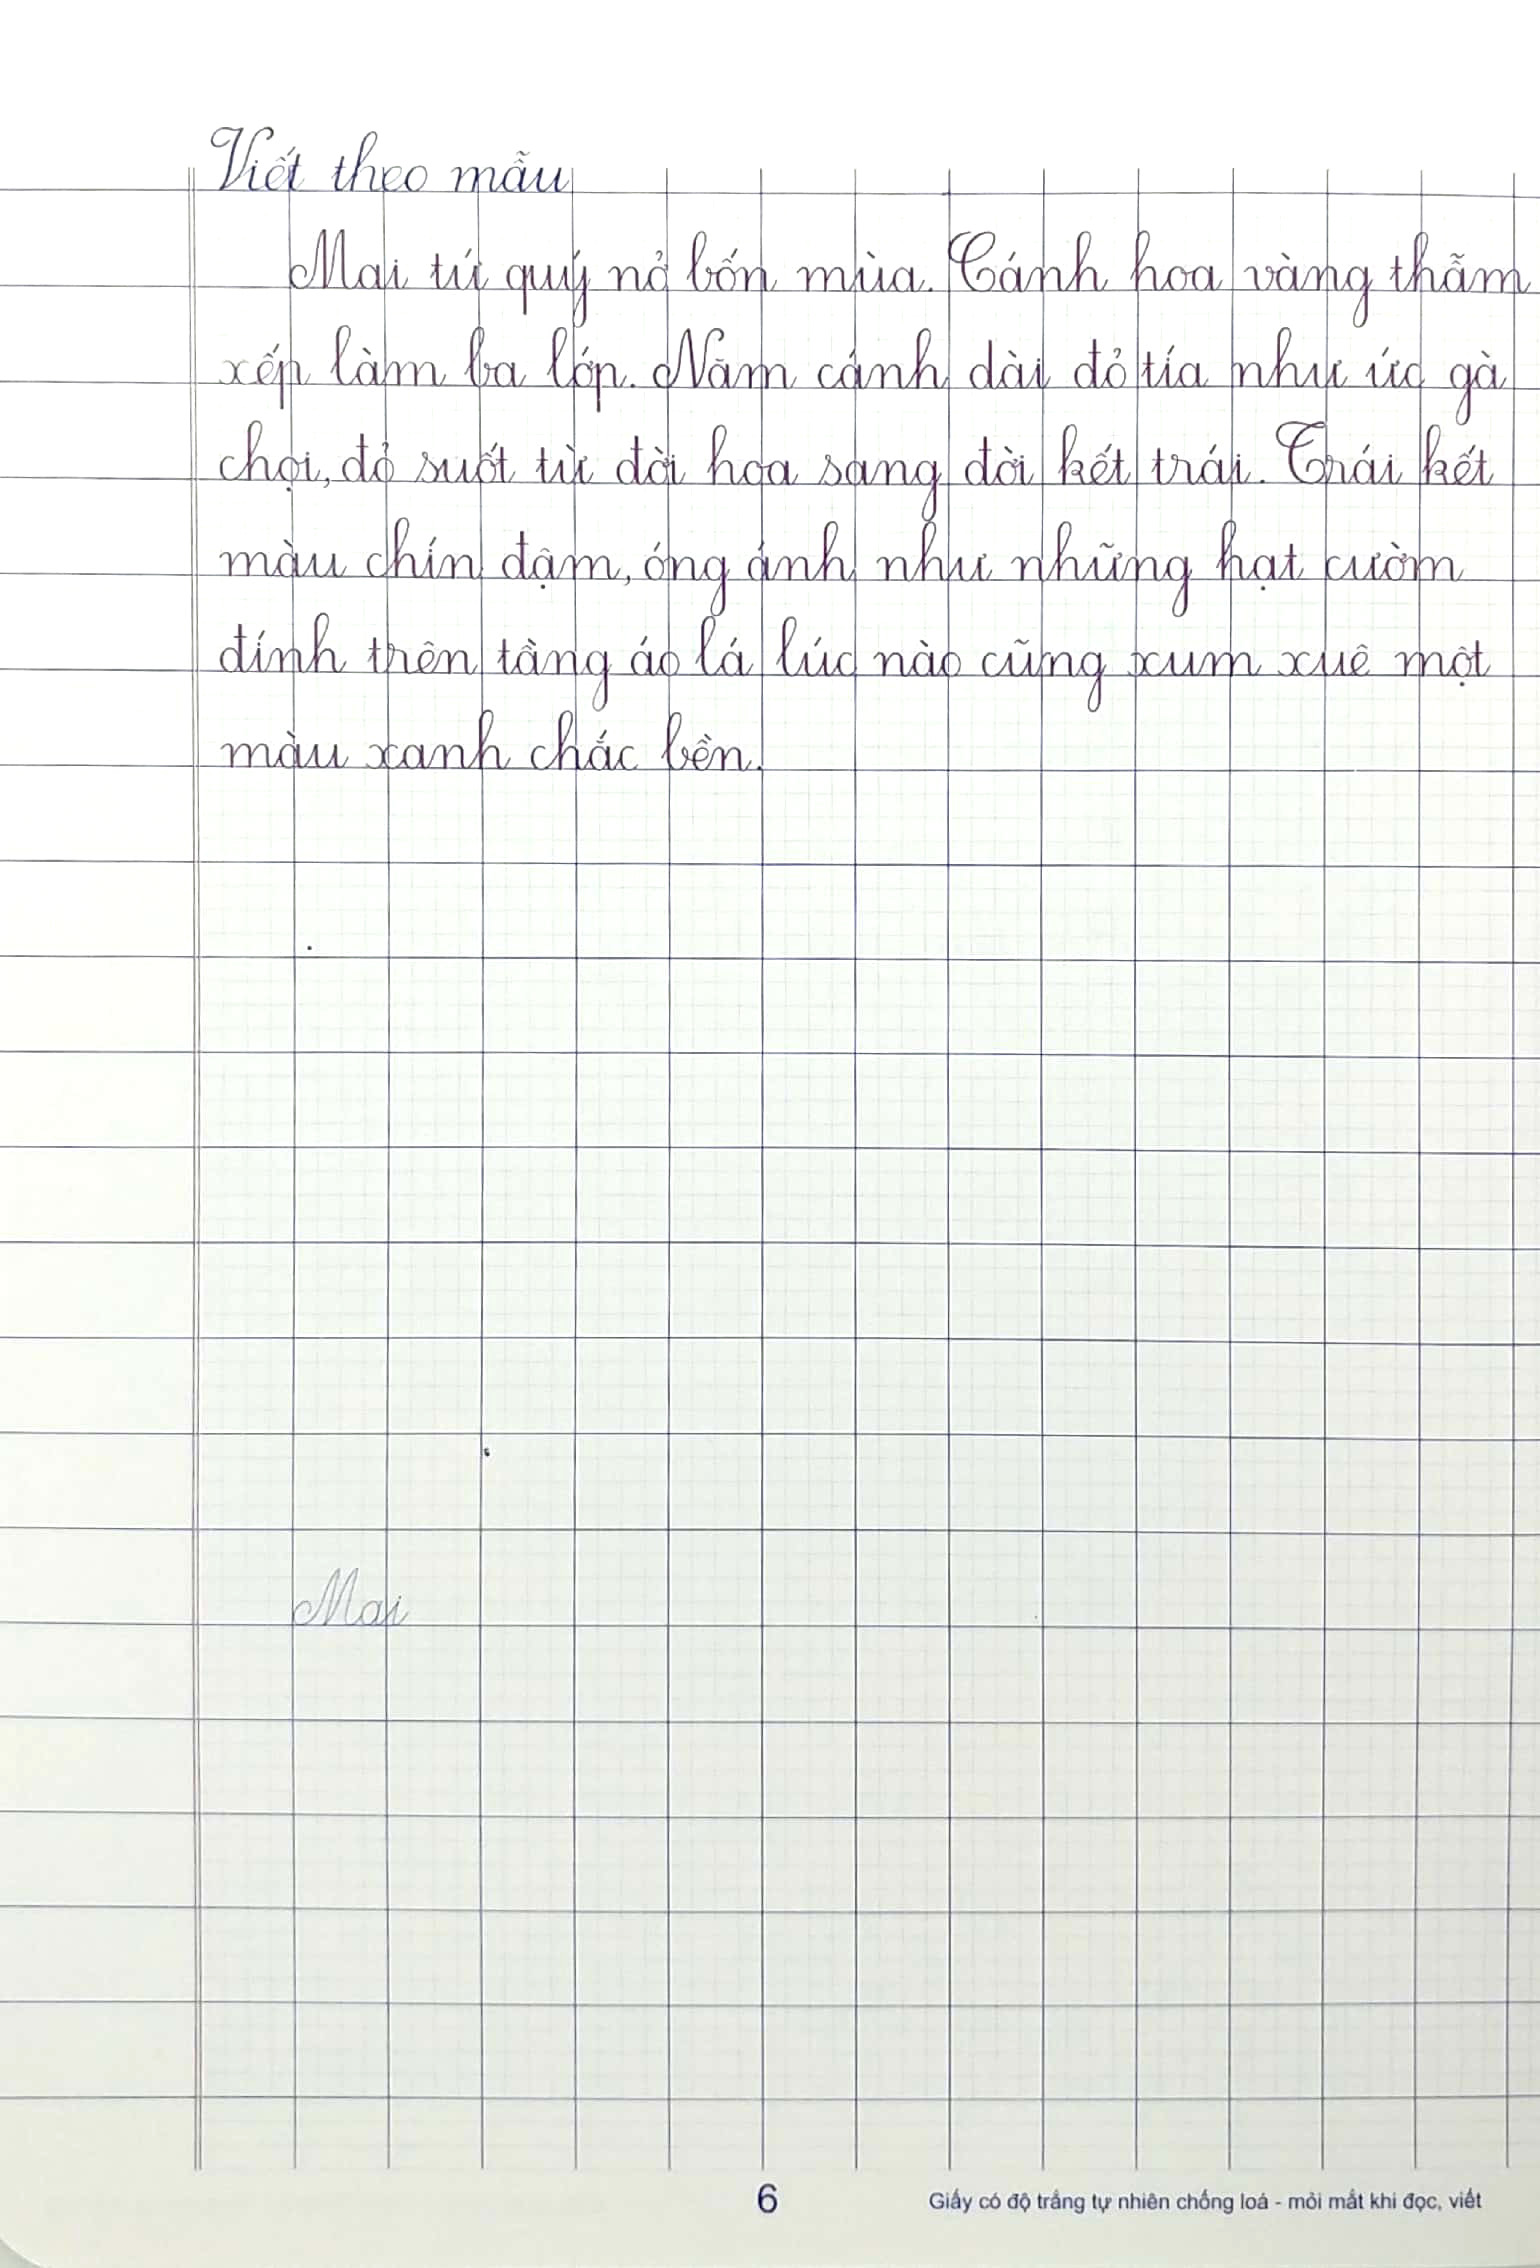 Viết theo mẫu
Mai tứ quý nở bốn mùa. Cánh hoa vàng thẫm
xếp làm ba lớp. Năm cánh dài đỏ tía như ức gà
chọi, đỏ suốt từ đời hoa sang đời kết trái. Trái kết
màu chín đậm, óng ánh như những hạt cườm
đính trên tầng áo lá lúc nào cũng xum xuê một
màu xanh chắc bền.
Mai
6
Giấy có độ trắng tự nhiên chống loá - mỏi mắt khi đọc, viết